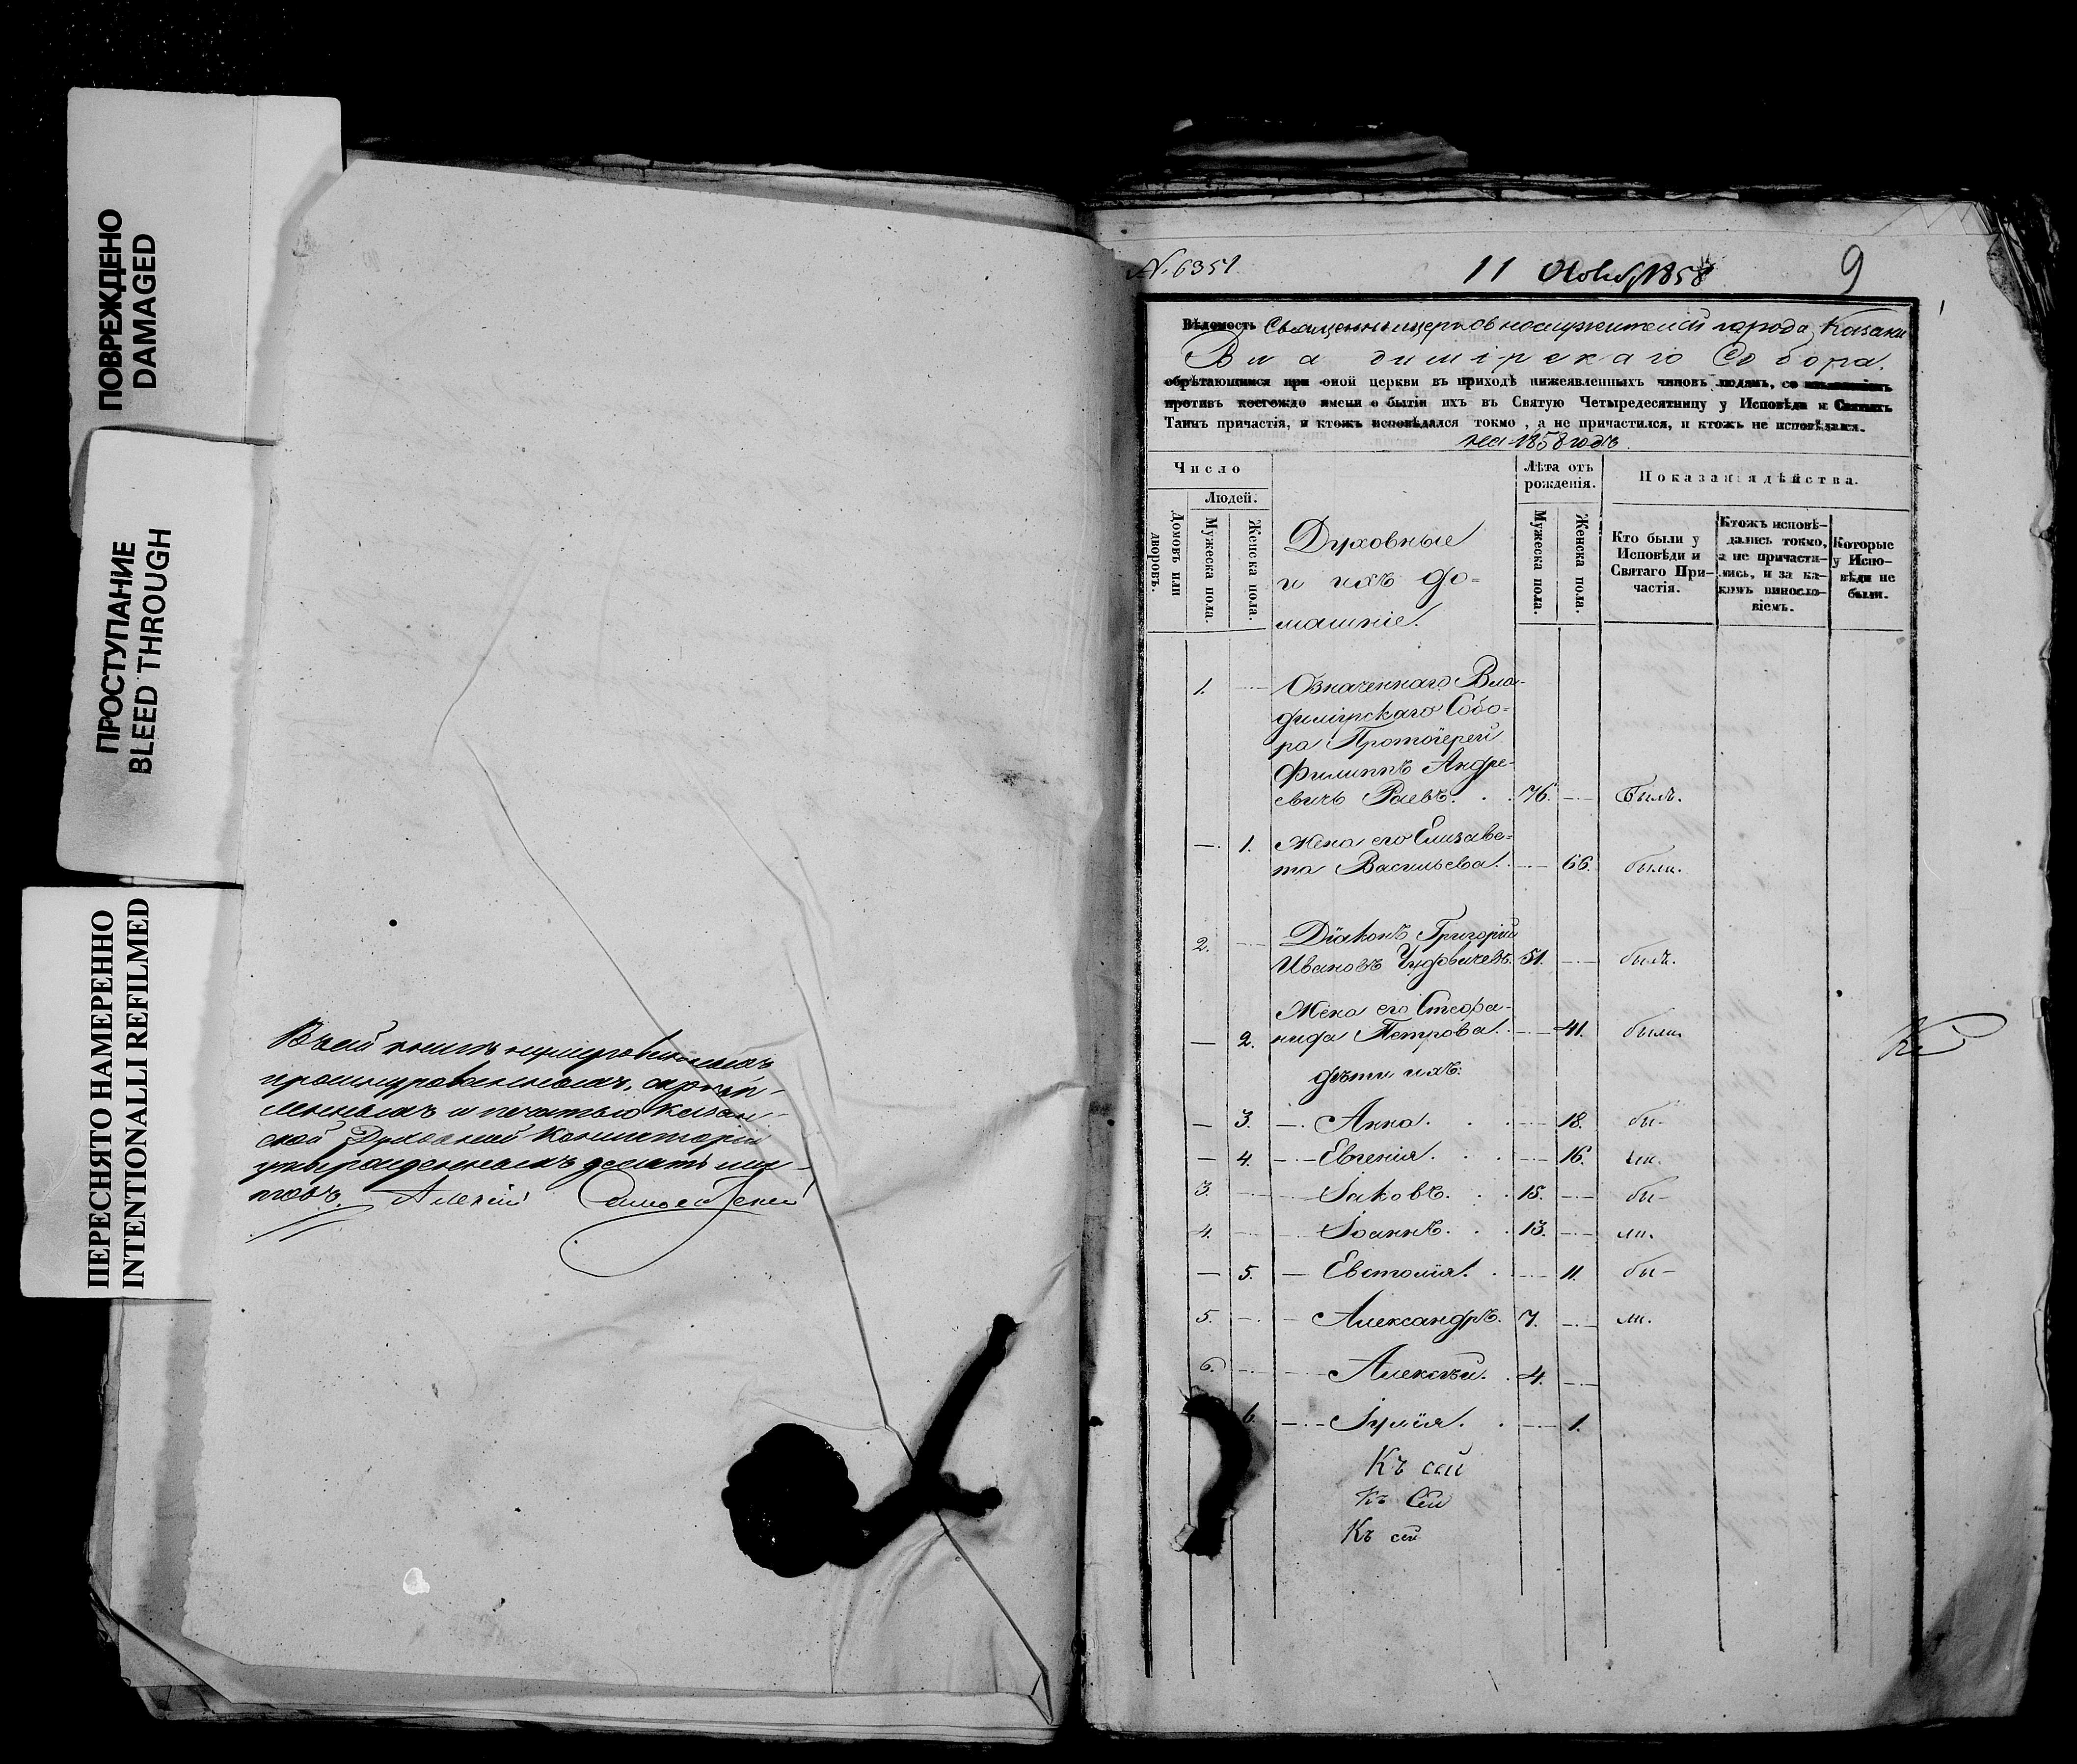 ПОВРЕЖДЕНО
DAMAGED
ПРОСТУПАНИЕ
BLEED THROUGH
ПЕРЕСНЯТО НАМЕРЕННО
INTENTIONALLI REFILMED
Въ сей книгѣ нумерованныхъ
прошнурованныхъ, скрѣп-
ленныхъ и печатью Казан-
ской Духовной Консисторіи
утвержденныхъ десять лис-
товъ. Алексій
№ 6351
11 1858
9
Вѣдомость Священноцерковнослужителей города Казани
Владимірскаго Собора.
обрѣтающимся при оной церкви въ приходѣ нижеявленныхъ чиновъ людямъ, со изъявленіемъ
противъ коегождо имени о бытіи ихъ въ Святую Четыредесятницу у Исповѣди и Святыхъ
Таинъ причастія, и ктожъ исповѣдался токмо, а не причастился, и ктожъ не исповѣдался.
на 1858 годъ.
Число
Лѣта отъ
рожденія.
Показанія дѣйства.
Людей.
Домовъ или
дворовъ.
Мужеска пола.
Женска пола.
Духовные
и ихъ до-
машніе.
Мужеска пола.
Женска пола.
Кто были у
Исповѣди и
Святаго При-
частія.
Ктожъ исповѣ-
дались токмо,
а не причасти-
лись, и за ка-
кимъ виносло-
віемъ.
Которые
у Испо-
вѣди не
были.
1. — Означеннаго Вла-
димірскаго Собо-
ра Протоіерей
Филиппъ Андре-
евичъ Раевъ. . . 76. — Былъ.
— 1. Жена его Елизаве-
та Васильева. — 66. была.
2. — Діаконъ Григорій
Ивановъ 51. — былъ.
Жена его Стефа-
— 2. нида Петрова. — 41. была.
дѣти ихъ:
— 3. — Анна. . . — 18. бы-
— 4. — Евгенія. . . — 16. ли.
3. — Іаковъ. . . 15. — бы-
4. — Іоаннъ. . . 13. — ли.
— 5. — Евстолія. . — 11. бы-
5. — Александръ. 7. — ли.
6. — Алексѣй. . 4. —
6. — Іулія. . — 1.
Къ сей
Къ Сей
Къ сей